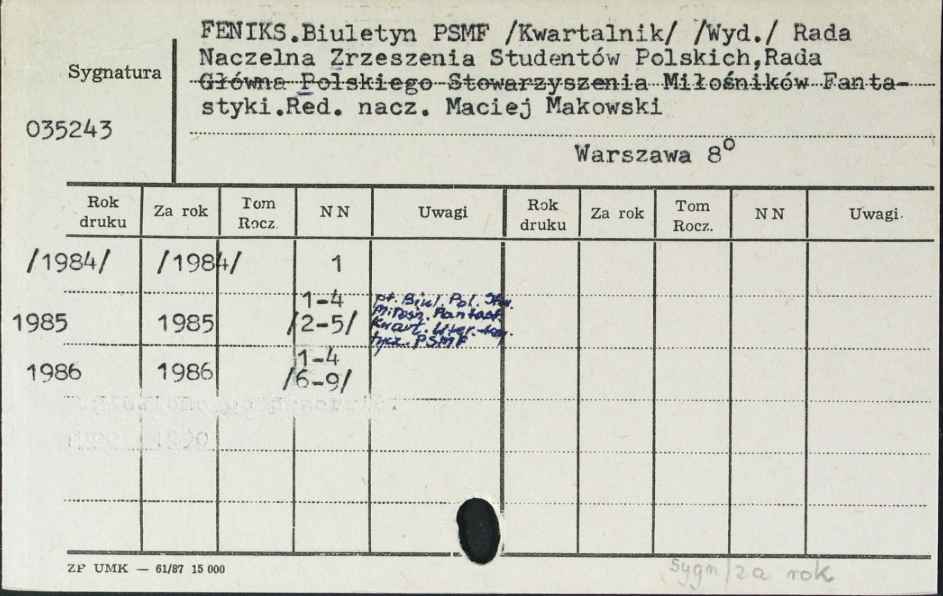 FENIKS.Biuletyn PSMF /Kwartalnik/ /Wyd./ Rada
Naczelna Zrzeszenia Studentów Polskich,Rada
Główna Polskiego Stowarzyszenia Miłośników Fanta-
styki.Red. nacz. Maciej Makowski
Sygnatura
035243
Warszawa 8°
Rok druku Za rok Tom Rocz. NN Uwagi Rok druku Za rok Tom Rocz. NN Uwagi
/1984/ /1984/ 1
1985 1985 1-4 /2-5/
pt. Biul. Pol. Stow.
Miłośn. Fantast.
Kwart. liter.-
tycz. PSMF
1986 1986 1-4 /6-9/
ZP UMK — 61/87 15 000
sygn/za rok